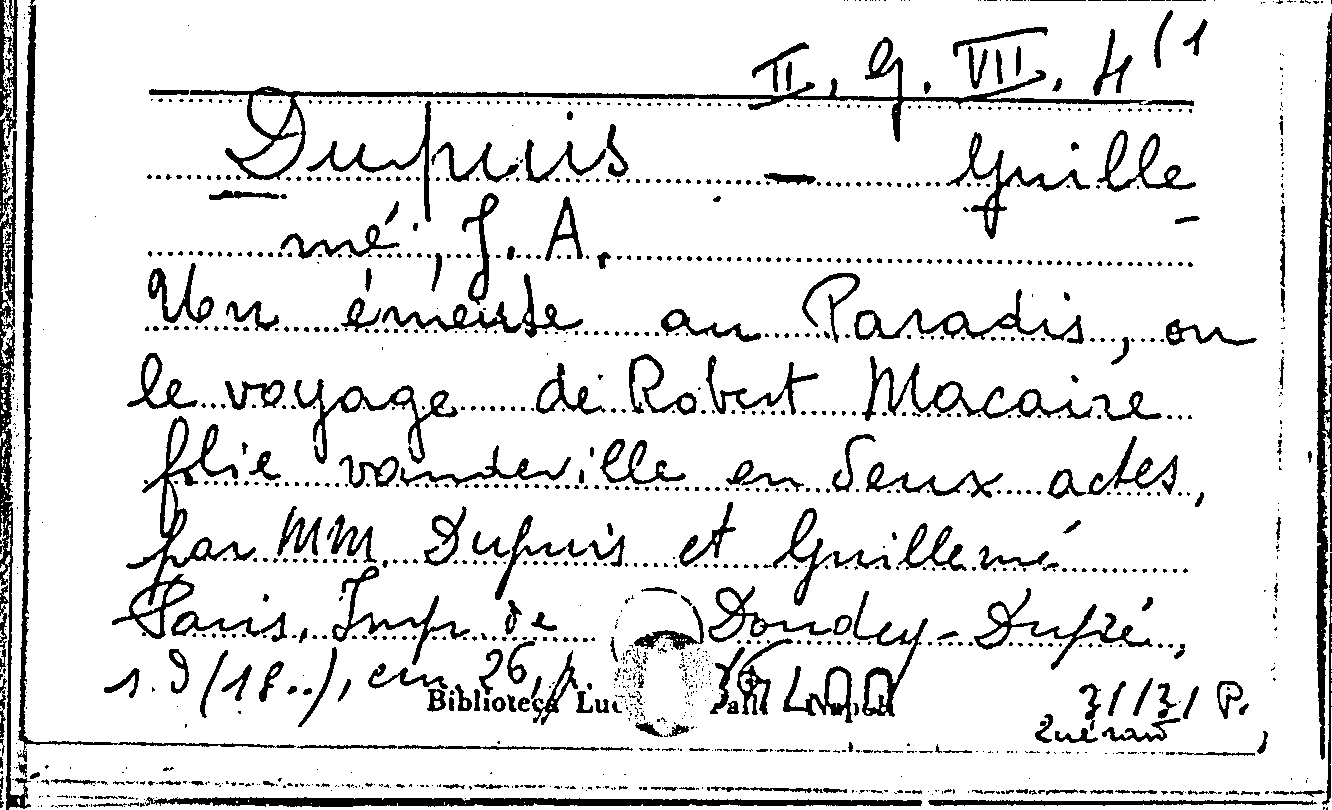 II. G. VII. 4 (1
Dupuis - Guille-
mé, J. A.
Un émeute au Paradis, ou
le voyage de Robert Macaire
folie vaudeville en deux actes,
par MM. Dupuis et Guillemé
Paris, Imp. de Dondey-Dupré,
s.d (18..), cm. 26, p.
Biblioteca Luc Palli Napoli